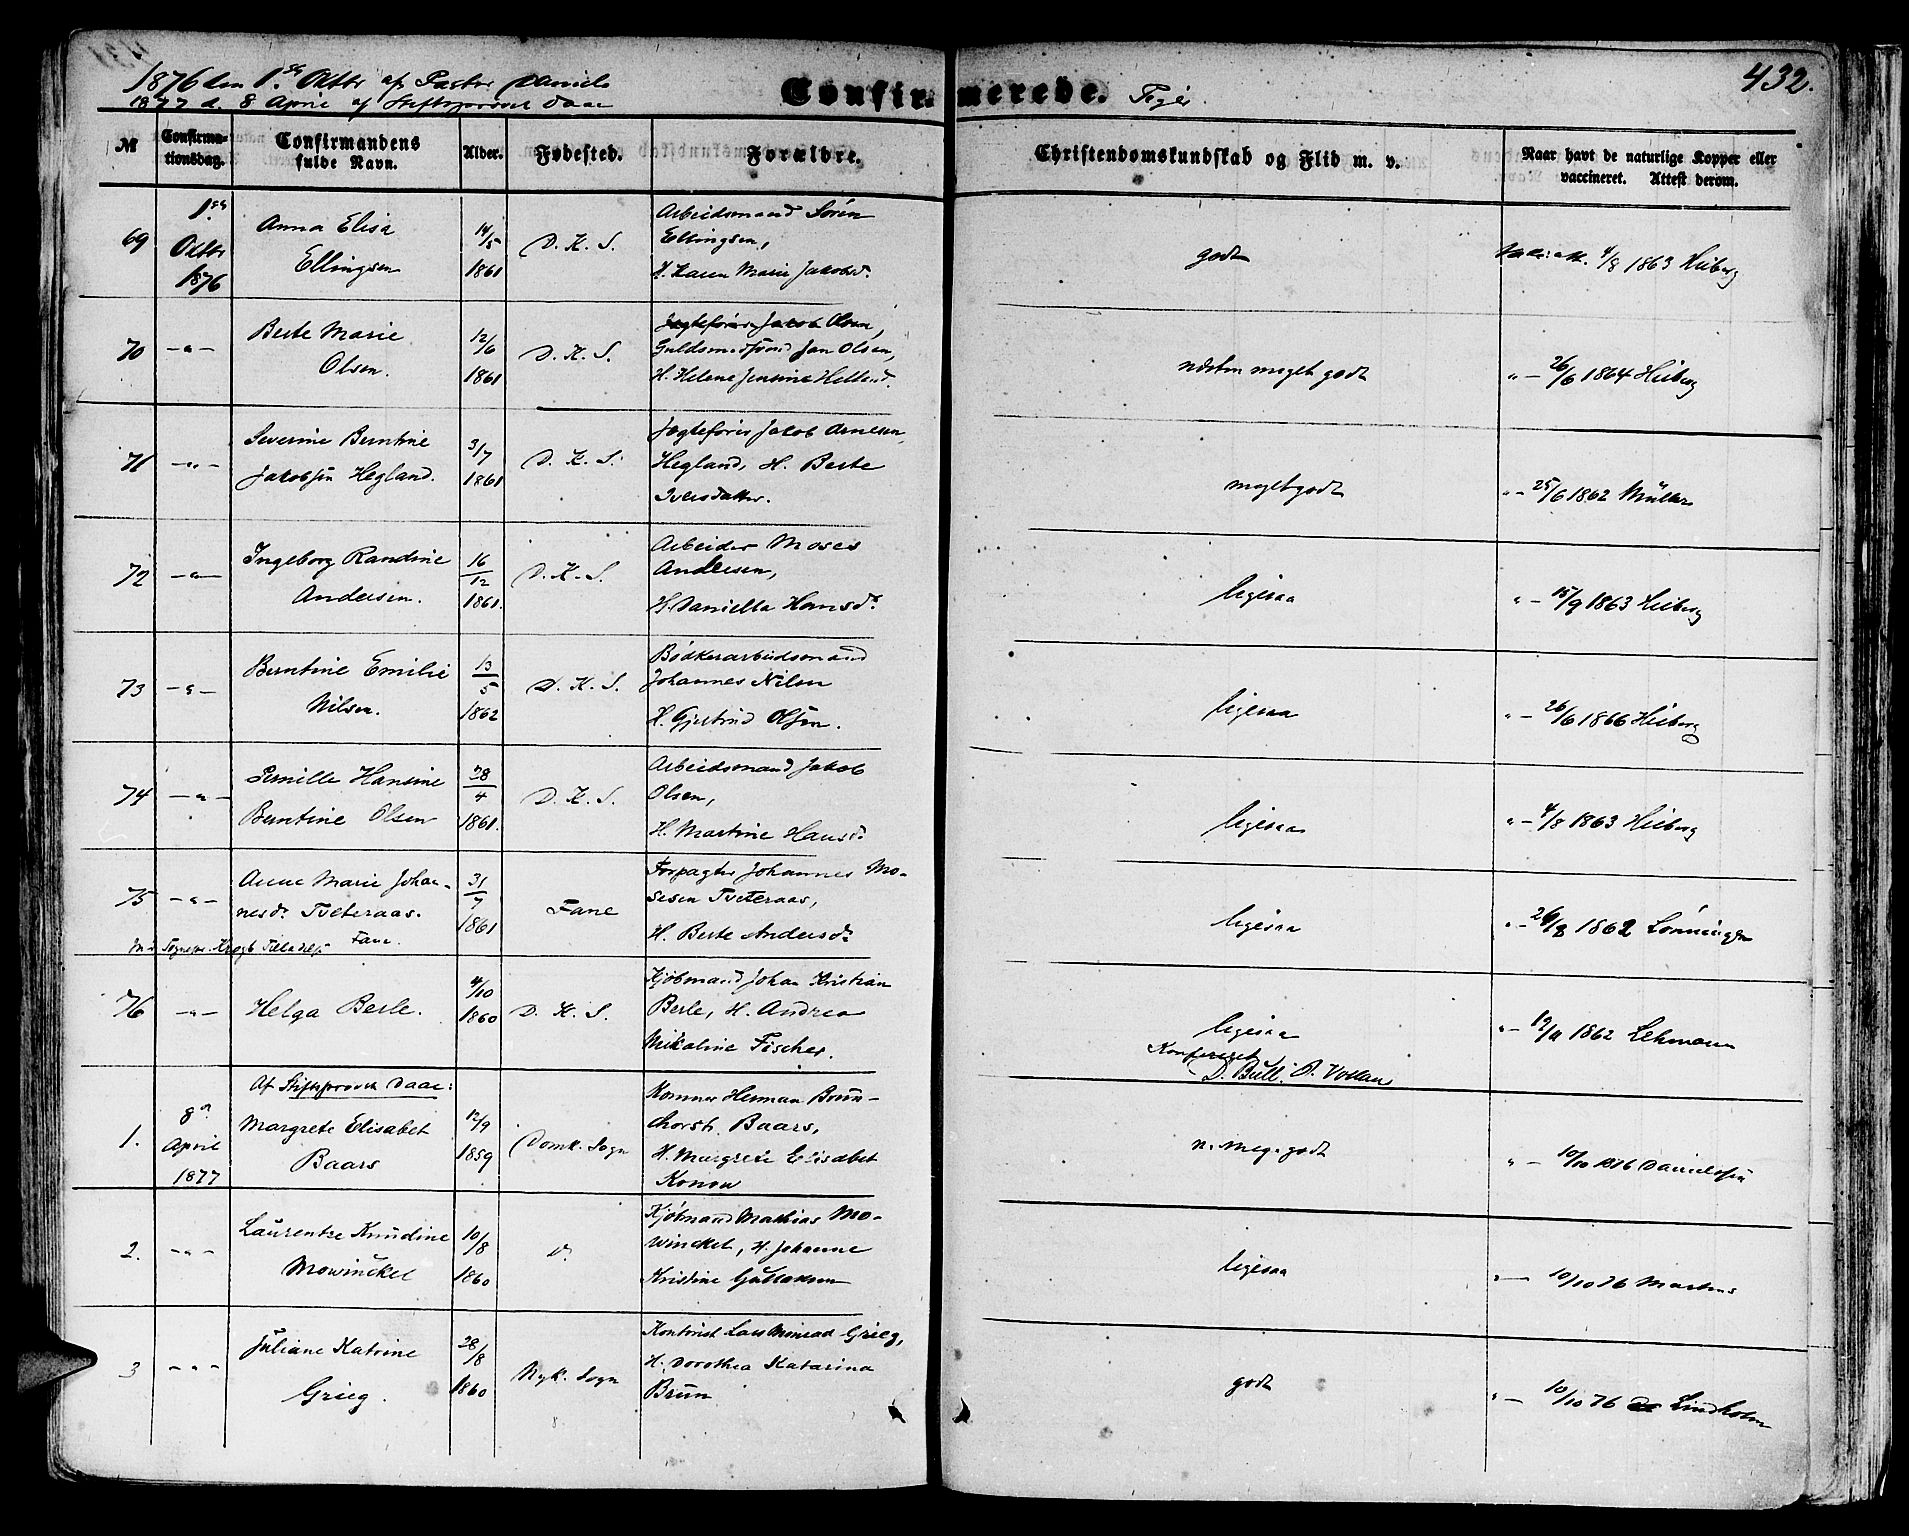 1876 den 1ste Oktbr af Pastor Daniels
1877 d. 8 April af Stiftsprovst Daae
Confirmerede. Piger.
432.
№ Confirmationsdag. Confirmandens fulde Navn. Alder. Fødested. Forældre. Christendomskundskab og Flid m. v. Naar havt de naturlige Kopper eller vaccineret. Attest derom.
69 1ste Oktbr 1876 Anna Elisa Ellingsen 14/5 1861 D. K. S. Arbeidsmand Sørén Ellingsen, H. Karen Marie Jakobsd. godt 4/8 1863 Heiberg
70 -"- Berte Marie Olsen. 12/6 1861 D. K. S. Jagtefører Jakob Olsen, Guldsmedsvend Jan Olsen, H. Helene Jensine Helland. næsten meget godt "- 26/6 1864 Heiberg
71 -"- Severine Berntine Jakobsen Hegland. 3/7 1861 D. K. S. Jagtefører Jakob Arnesen Hegland, H. Berte Iversdatter. meget godt "- 25/6 1862 Müller
72 -"- Ingeborg Randine Andersen. 16/12 1861. D. K. S. Arbeider Moses Andersen, H. Daniella Hansd. ligesaa "- 15/9 1863 Heiberg
73 -"- Berntine Emilie Nilsen. 13/5 1862 D. K. S. Bødkerarbeidsmand Johannes Nilsen H. Gjertrud Olsen. ligesaa "- 26/6 1866 Heiberg
74 -"- Pernille Hansine Berntine Olsen 28/4 1861. D. K. S. Arbeidsmand Jakob Olsen, H. Martine Hansd. ligesaa "- 4/8 1863 Heiberg
75 -"- Anne Marie Johannesd. Tveteraas. Fane. 31/7 1861 Fane Forpagter Johannes Mosesen Tveteraas, H. Berte Andersd. ligesaa "- 26/8 1862 Lønningen
76 -"- Helga Berle. 4/10 1860 D. K. S. Kjøbmand Johan Kristian Berle, H. Andrea Nikoline Fischer. ligesaa "- 19/11 1862 Lehmann
Konfereret D. Bull. P. Vollan
Af Stiftsprovst Daae:
1. 8de April 1877 Margrete Elisabet Baars 12/9 1859 Domk. Sogn Kornmr Herman Brunchorst Baars, H. Margrete Elisabet Konow n. meg. godt "- 10/10 1876 Danielssen
2. -"- Laurentze Knudine Mowinckel 10/8 1860 D. Kjøbmand Mathias Mowinckel, H. Johanne Kristine Gullaksen ligesaa "- 10/10 76 Martens
3 -"- Juliane Katrine Grieg. 28/8 1860 Nyk. Sogn Kontorist Lars Meinrad Grieg, H. Dorothea Katarina Brun godt "- 10/10 76 Lindholm